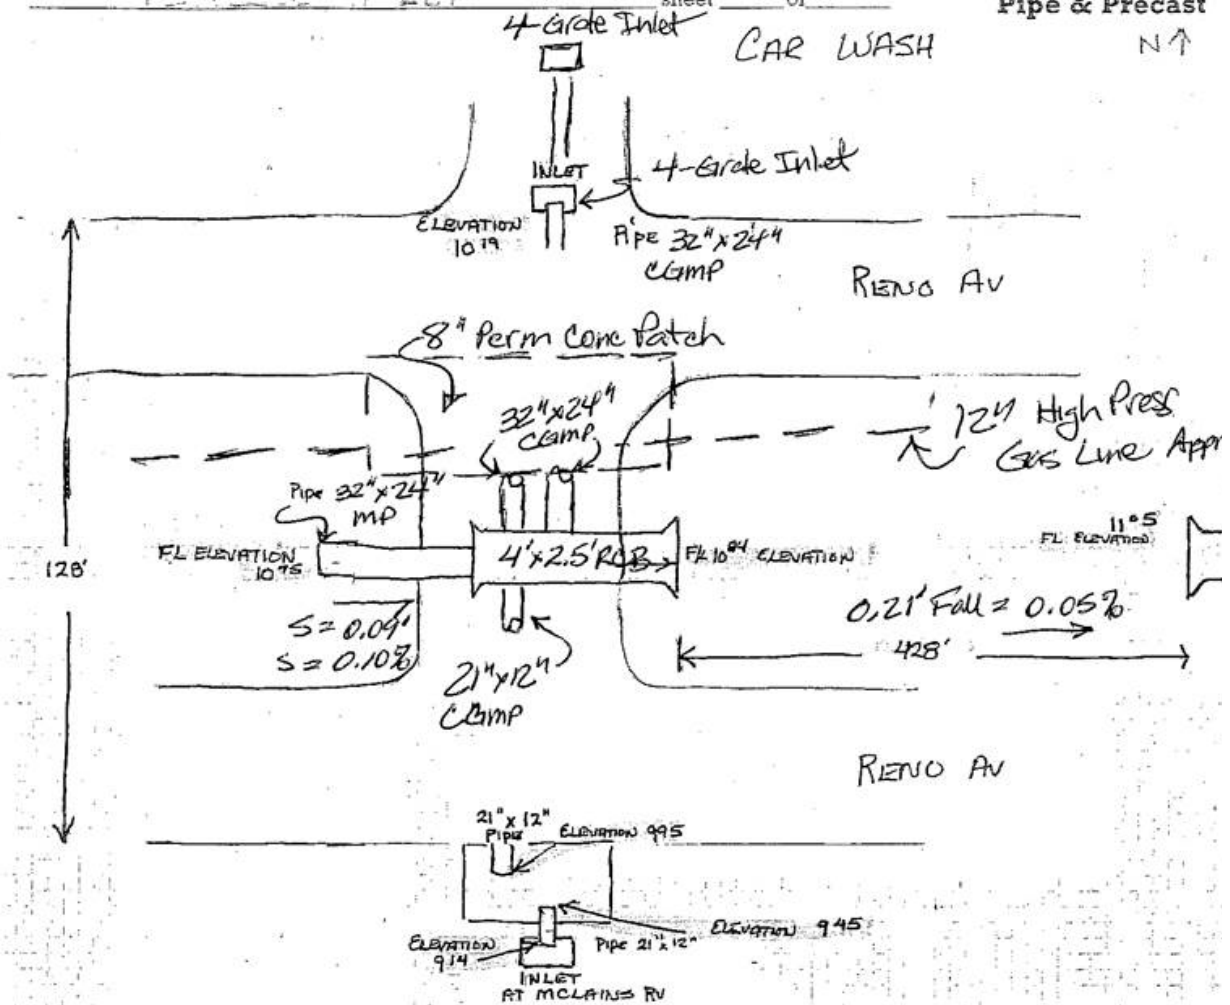 sheet of
Pipe & Precast
4-Grate Inlet
CAR WASH
N↑
INLET
4-Grate Inlet
ELEVATION
10 79
Pipe 32"x24"
CGMP
RENO AV
8" Perm Conc Patch
32"x24"
CGMP
12" High Press
Gas Line Appr
Pipe 32"x24"
MP
FL ELEVATION
10 75
4'x2.5' RCB
FL 10 84 ELEVATION
11 05
FL ELEVATION
128'
S=0.09'
S=0.10%
0.21' Fall = 0.05%
428'
21"x12"
CGMP
RENO AV
21"x12"
PIPE
ELEVATION 995
ELEVATION 945
ELEVATION
914
Pipe 21"x12"
INLET
AT MCLAINS RV